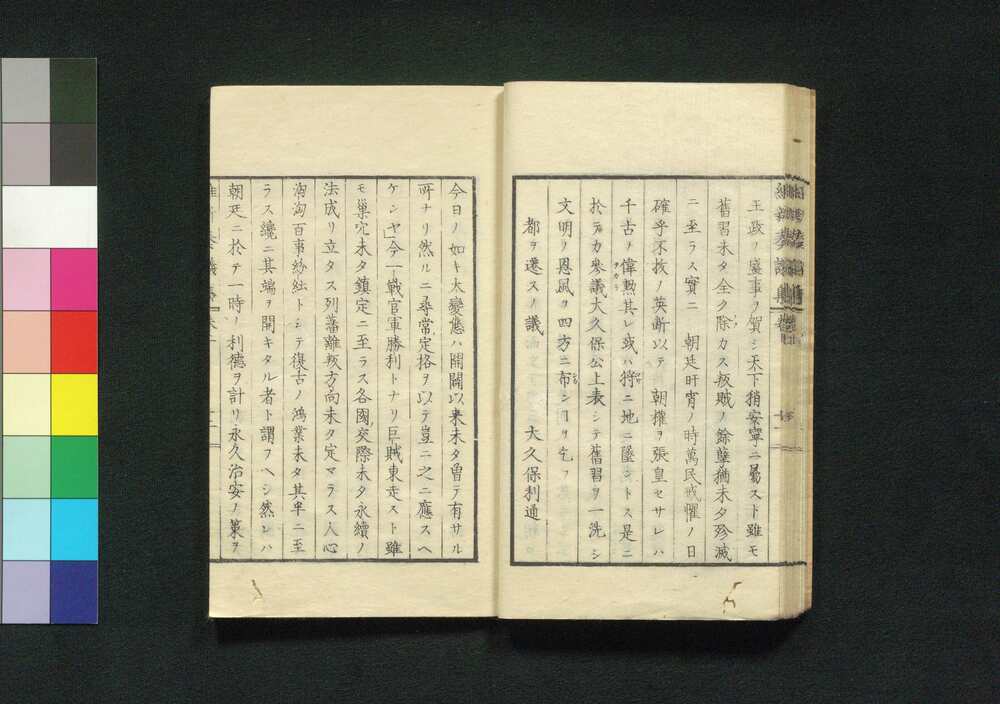 王政ノ盛事ヲ賀シ天下稍安寧ニ属スト雖モ
舊習未タ全ク除カス叛賊ノ餘孽猶未タ殄滅
ニ至ラス實ニ 朝廷旰宵ノ時萬民戒懼ノ日
確乎不抜ノ英断以テ 朝權ヲ張皇セサレハ
千古ノ偉勲其レ或ハ将ニ地ニ墜ントス是ニ
於テカ参議大久保公上表シテ舊習ヲ一洗シ
文明ノ恩風ヲ四方ニ布ンヿヲ乞フ
都ヲ遷スノ議 大久保利通
今日ノ如キ大變態ハ開闢以来未タ曽テ有サル
所ナリ然ルニ尋常定格ヲ以テ豈ニ之ニ應スヘ
ケンヤ今一戦官軍勝利トナリ巨賊東走スト雖
モ巣穴未タ鎮定ニ至ラス各國交際未タ永續ノ
法成リ立タス列藩離叛方向未タ定マラス人心
洶洶百事紛紜トシテ復古ノ鴻業未タ其半ニ至
ラス纔ニ其端ヲ開キタル者ト謂フヘシ然レハ
朝廷ニ於テ一時ノ利徳ヲ計リ永久治安ノ策ヲ